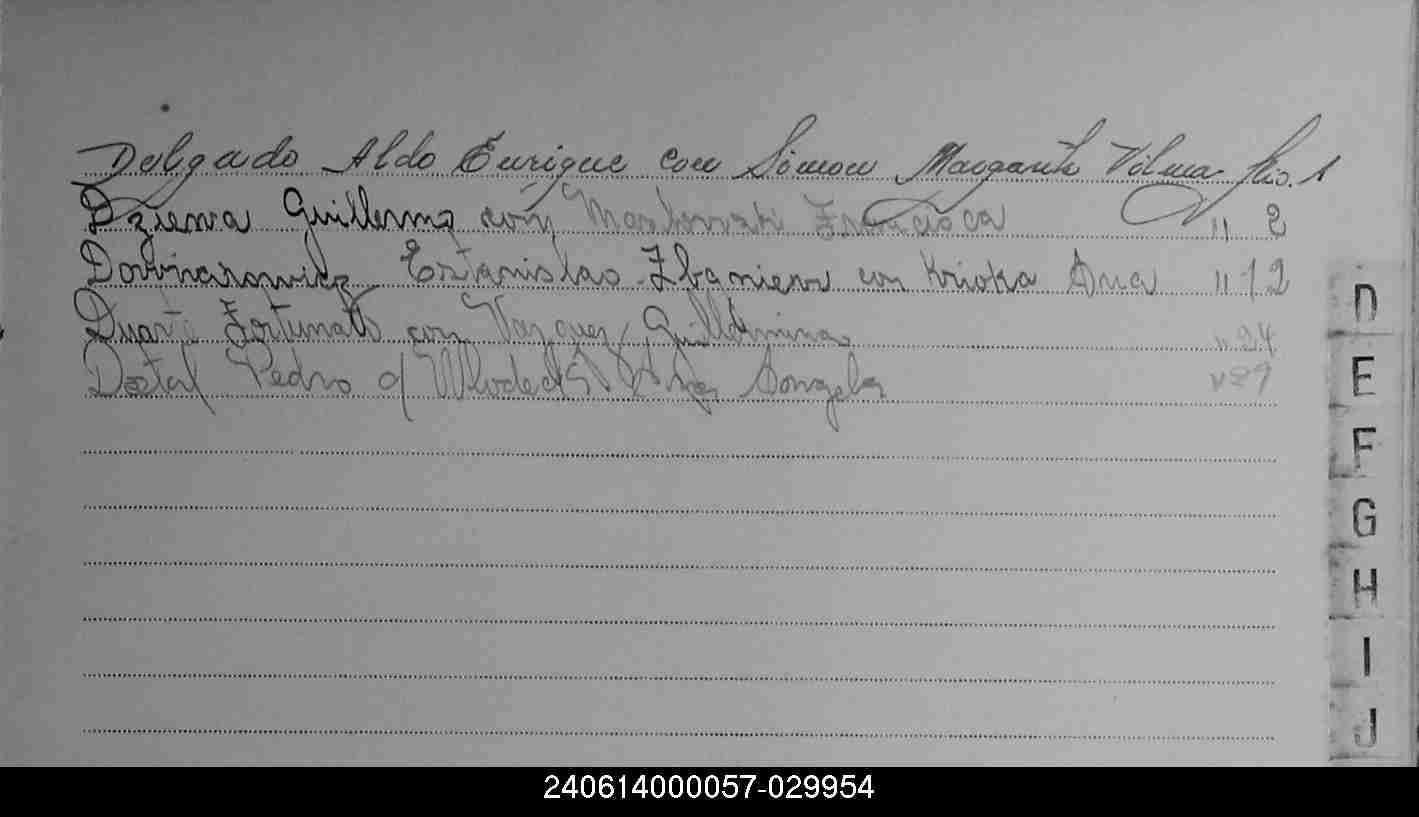 Delgado Aldo Enrique con Simon Margarita Vilma fls. 1
Dziewa Guillermo con Francisca " 2
Estanislao Zbaniew con Krioka Ana " 12
Duarte Fortunato con Vazquez Guillermina " 24
Dostal Pedro c/ " 29
D
E
F
G
H
I
J
240614000057-029954